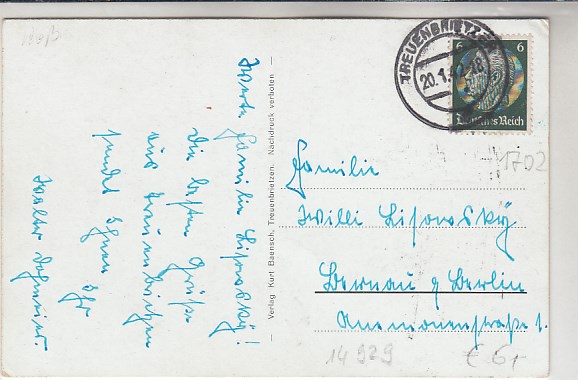 Werte Familie Lisowsky!
Die besten Grüße
aus Treuenbrietzen
sendet Ihnen Ihr
Walter
– Verlag Kurt Baensch, Treuenbrietzen. Nachdruck verboten –
TREUENBRIETZEN
20.1.
6 6
Deutsches Reich
1702
Familie
Willi Lisowsky
Bernau b/Berlin
Anemonenstraße 1.
14929
€ 6,-